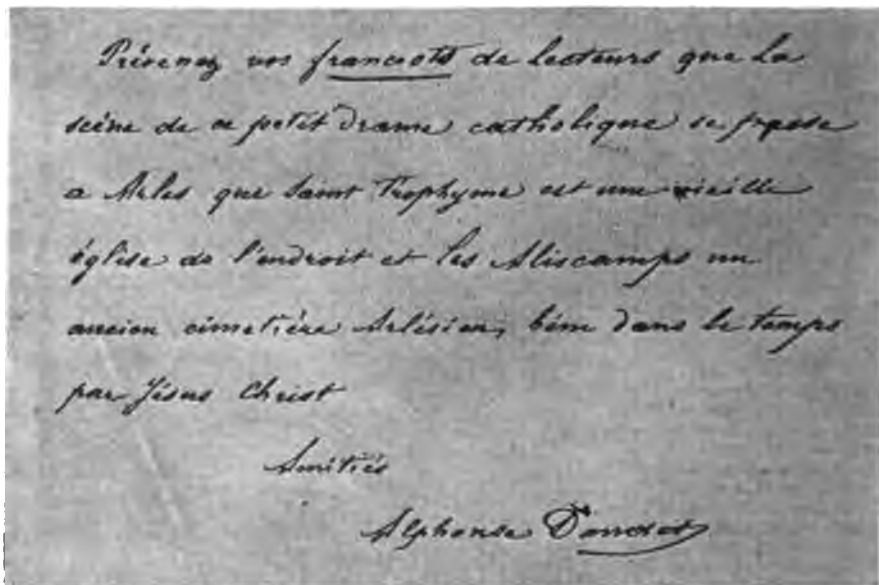 Prévenez vos franciots de lecteurs que la
scène de ce petit drame catholique se passe
a Arles que Saint Trophyme est une vieille
église de l'endroit et les Aliscamps un
ancien cimetière Arlésien, béni dans le temps
par Jésus Christ
Amitiés
Alphonse Daudet